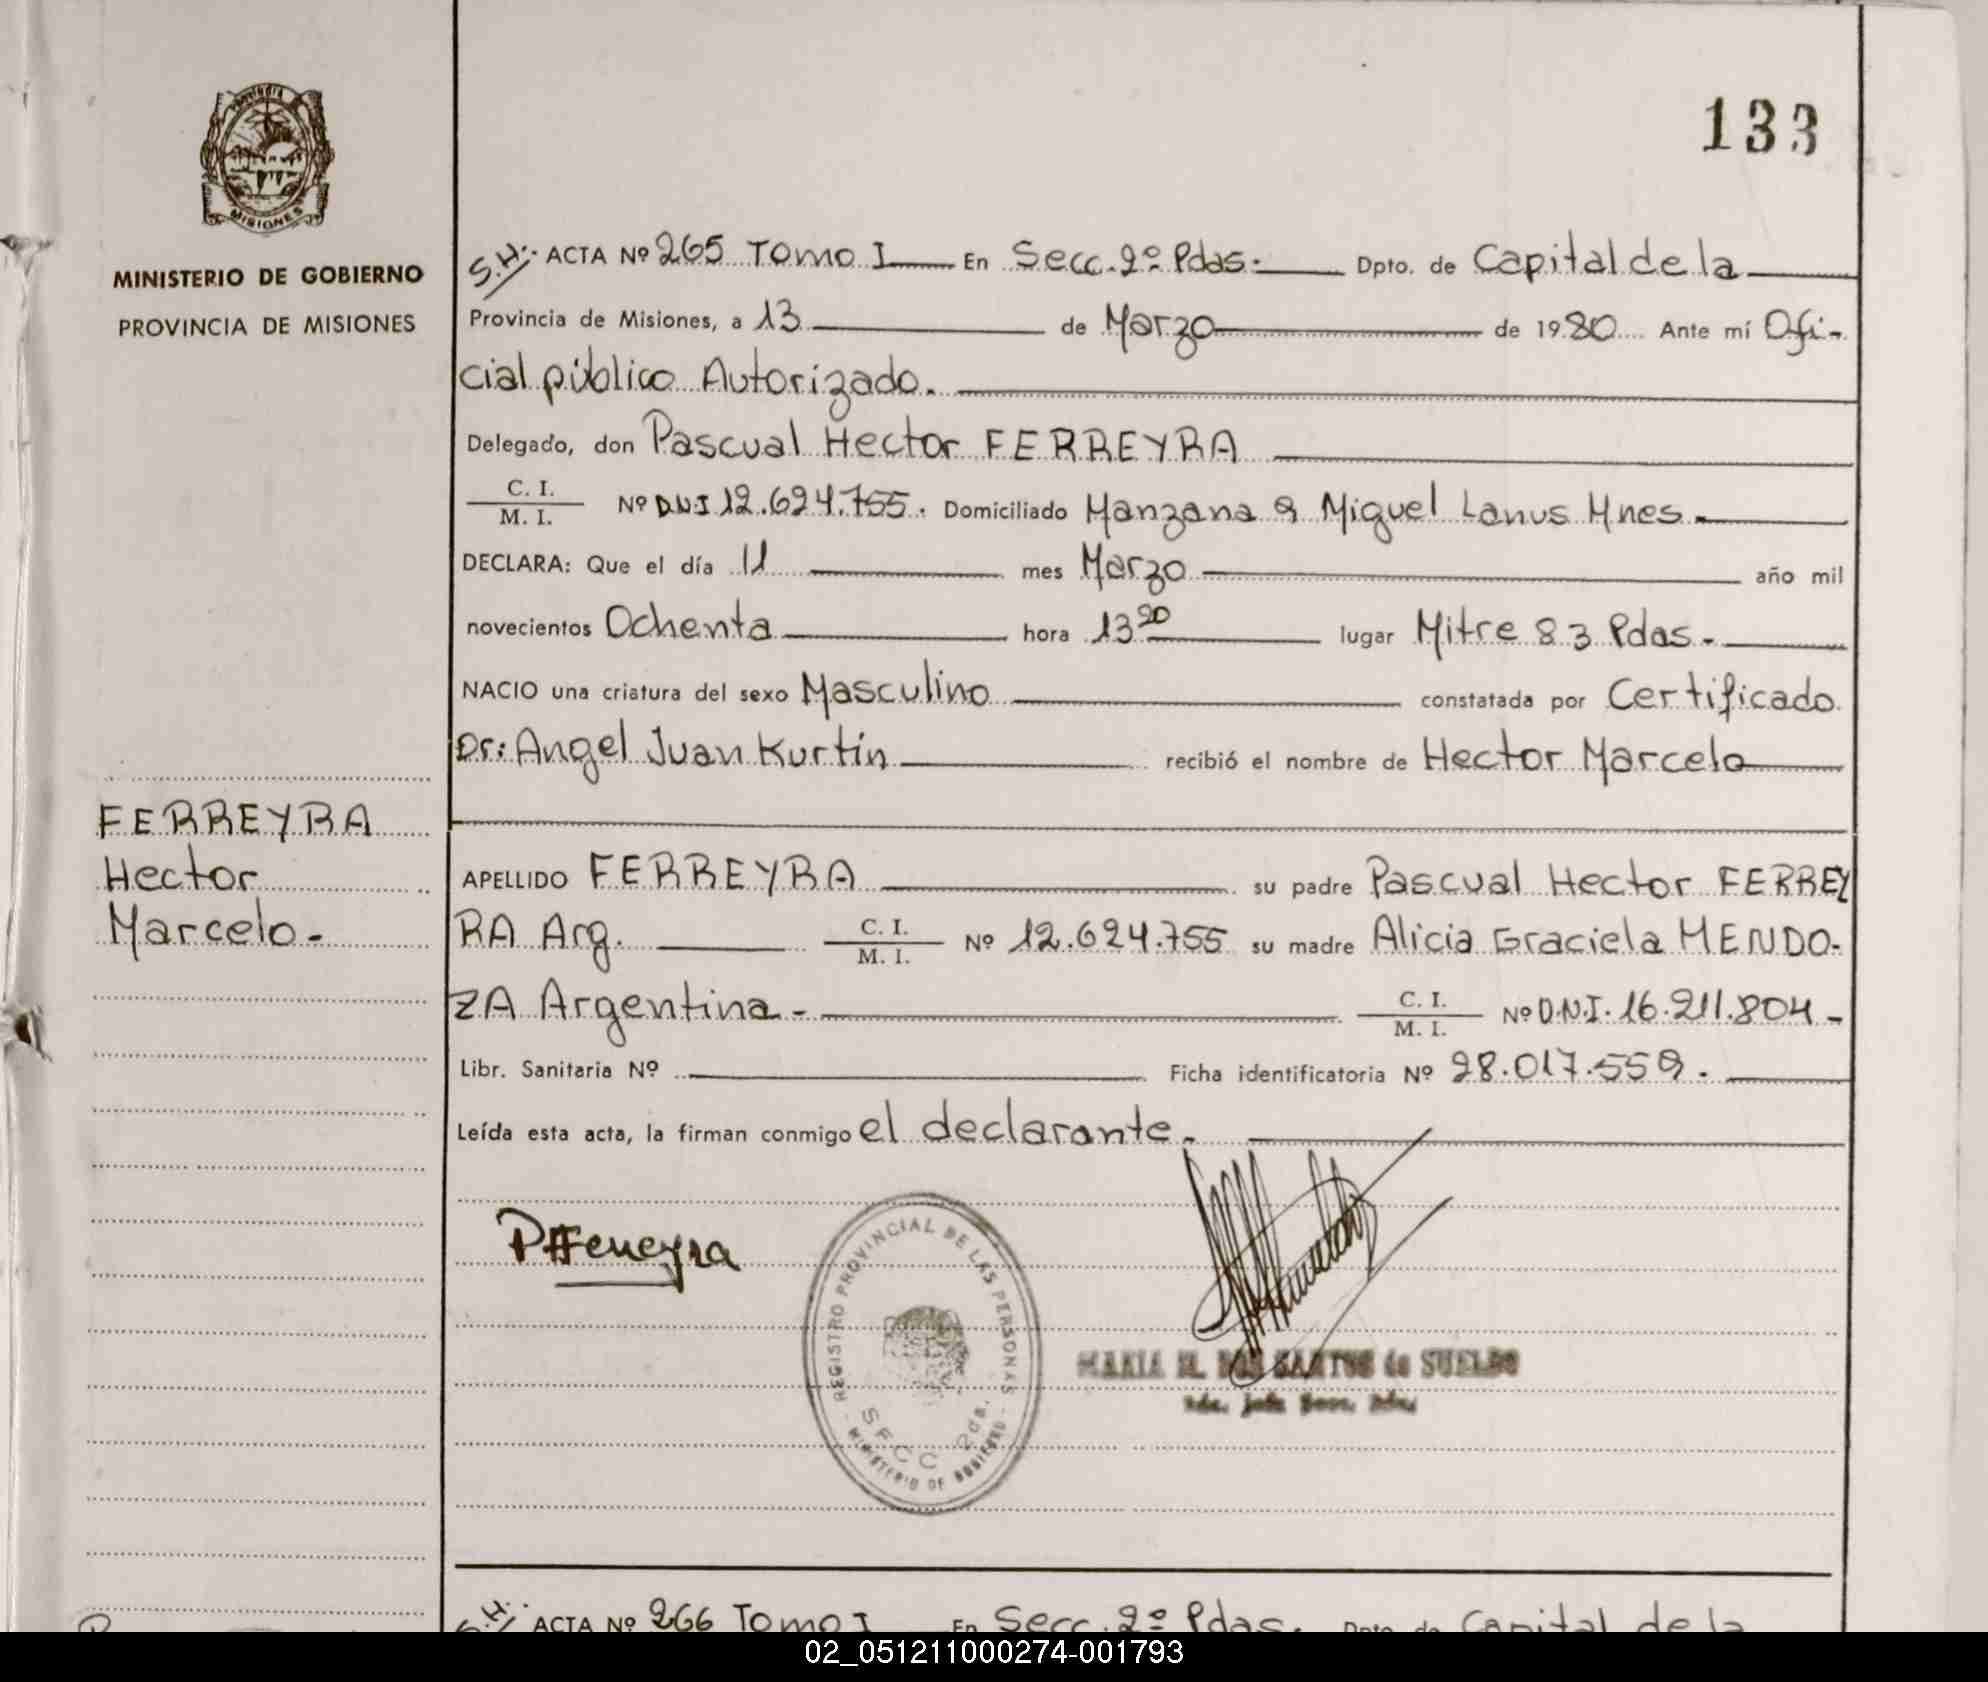 133
PROVINCIA
MISIONES
MINISTERIO DE GOBIERNO
PROVINCIA DE MISIONES
S.H. ACTA Nº 265 Tomo I En Secc. 2º Pdas. Dpto. de Capital de la
Provincia de Misiones, a 13 de Marzo de 1980 Ante mí Ofi-
cial público Autorizado.
Delegado, don Pascual Hector FERREYRA
C. I.
M. I. Nº D.N.I 12.624.755. Domiciliado Manzana 9 Miguel Lanus Mnes.
DECLARA: Que el día 11 mes Marzo año mil
novecientos Ochenta hora 13 20 lugar Mitre 83 Pdas.
NACIO una criatura del sexo Masculino constatada por Certificado
Dr: Angel Juan Kurtin recibió el nombre de Hector Marcelo
FERREYRA
Hector
Marcelo-
APELLIDO FERREYRA su padre Pascual Hector FERREY
RA Arg. C. I.
M. I. Nº 12.624.755 su madre Alicia Graciela MENDO-
ZA Argentina - C. I.
M. I. Nº D.N.I. 16.211.804-
Libr. Sanitaria Nº Ficha identificatoria Nº 28.017.559.
Leída esta acta, la firman conmigo el declarante.
PHFerreyra
REGISTRO PROVINCIAL DE LAS PERSONAS
SECC 2da.
MINISTERIO DE GOBIERNO
MARIA M. DOS SANTOS de SUELDO
S.H. ACTA Nº 266 Tomo I En Secc. 2º Pdas. Dpto. de Capital de la
02_051211000274-001793